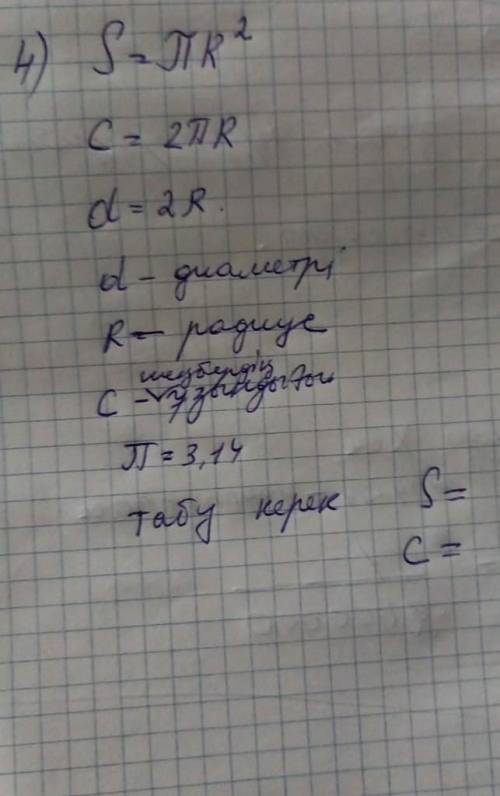 4) S = ПR²
C = 2ПR
d = 2R.
d - диаметрі
R - радиус
шеңбердің
C - ұзындығы
П = 3,14
табу керек S =
C =